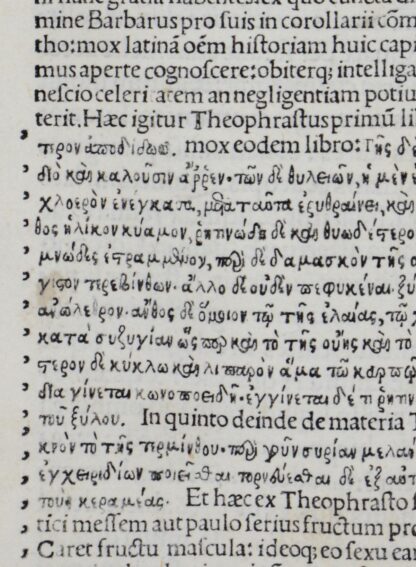 mine Barbarus pro suis in corollarii cōm
tho:mox latinā oēm historiam huic capi
mus aperte cognoscere:obiterq; intelliga
nescio celeri atem an negligentiam potiu
terit. Hæc igitur Theophrastus primū li
τερον ἀποδίδωσι. mox eodem libro: τῆς δὲ
διὸ καὶ καλοῦσιν ἄρρεν· τῶν δὲ θυλειῶν, ἡ μὲν ἐ
χλοερὸν ἐνέγκασα, μετὰ ταῦτα ἐρυθραίνει, καὶ
θος ἡλίκον κύαμον, ῥητινώδη δὲ καὶ θυωδέστερο
γισον τερεβίνθων· ἄλλο δὲ οὐδὲν πεφυκέναι· ξύ
ἀνώλεθρον· ἄνθος δὲ ὅμοιον τῷ τῆς ἐλαίας, τῷ χ
κατὰ συζυγίαν ὥσπερ καὶ τὸ τῆς οὔης καὶ τὸ
στερον δὲ κύκλῳ καὶ λιπαρὸν ἅμα τῷ καρπῷ
δια γίνεται κωνοποειδῆ· ἐγγίνεται δέ τι ῥητιν
τοῦ ξύλου. In quinto deinde de materia T
κνὸν τὸ τῆς τερμίνθου· περὶ γοῦν συρίαν μελαν
ἐγχειριδίων ποιεῖσθαι τορνεύεσθαι δὲ ἐξ αὐτ
τοὺς κεραμέας. Et hæc ex Theophrasto s
tici messem aut paulo serius fructum pro
Caret fructu mascula: ideoq; eo sexu car